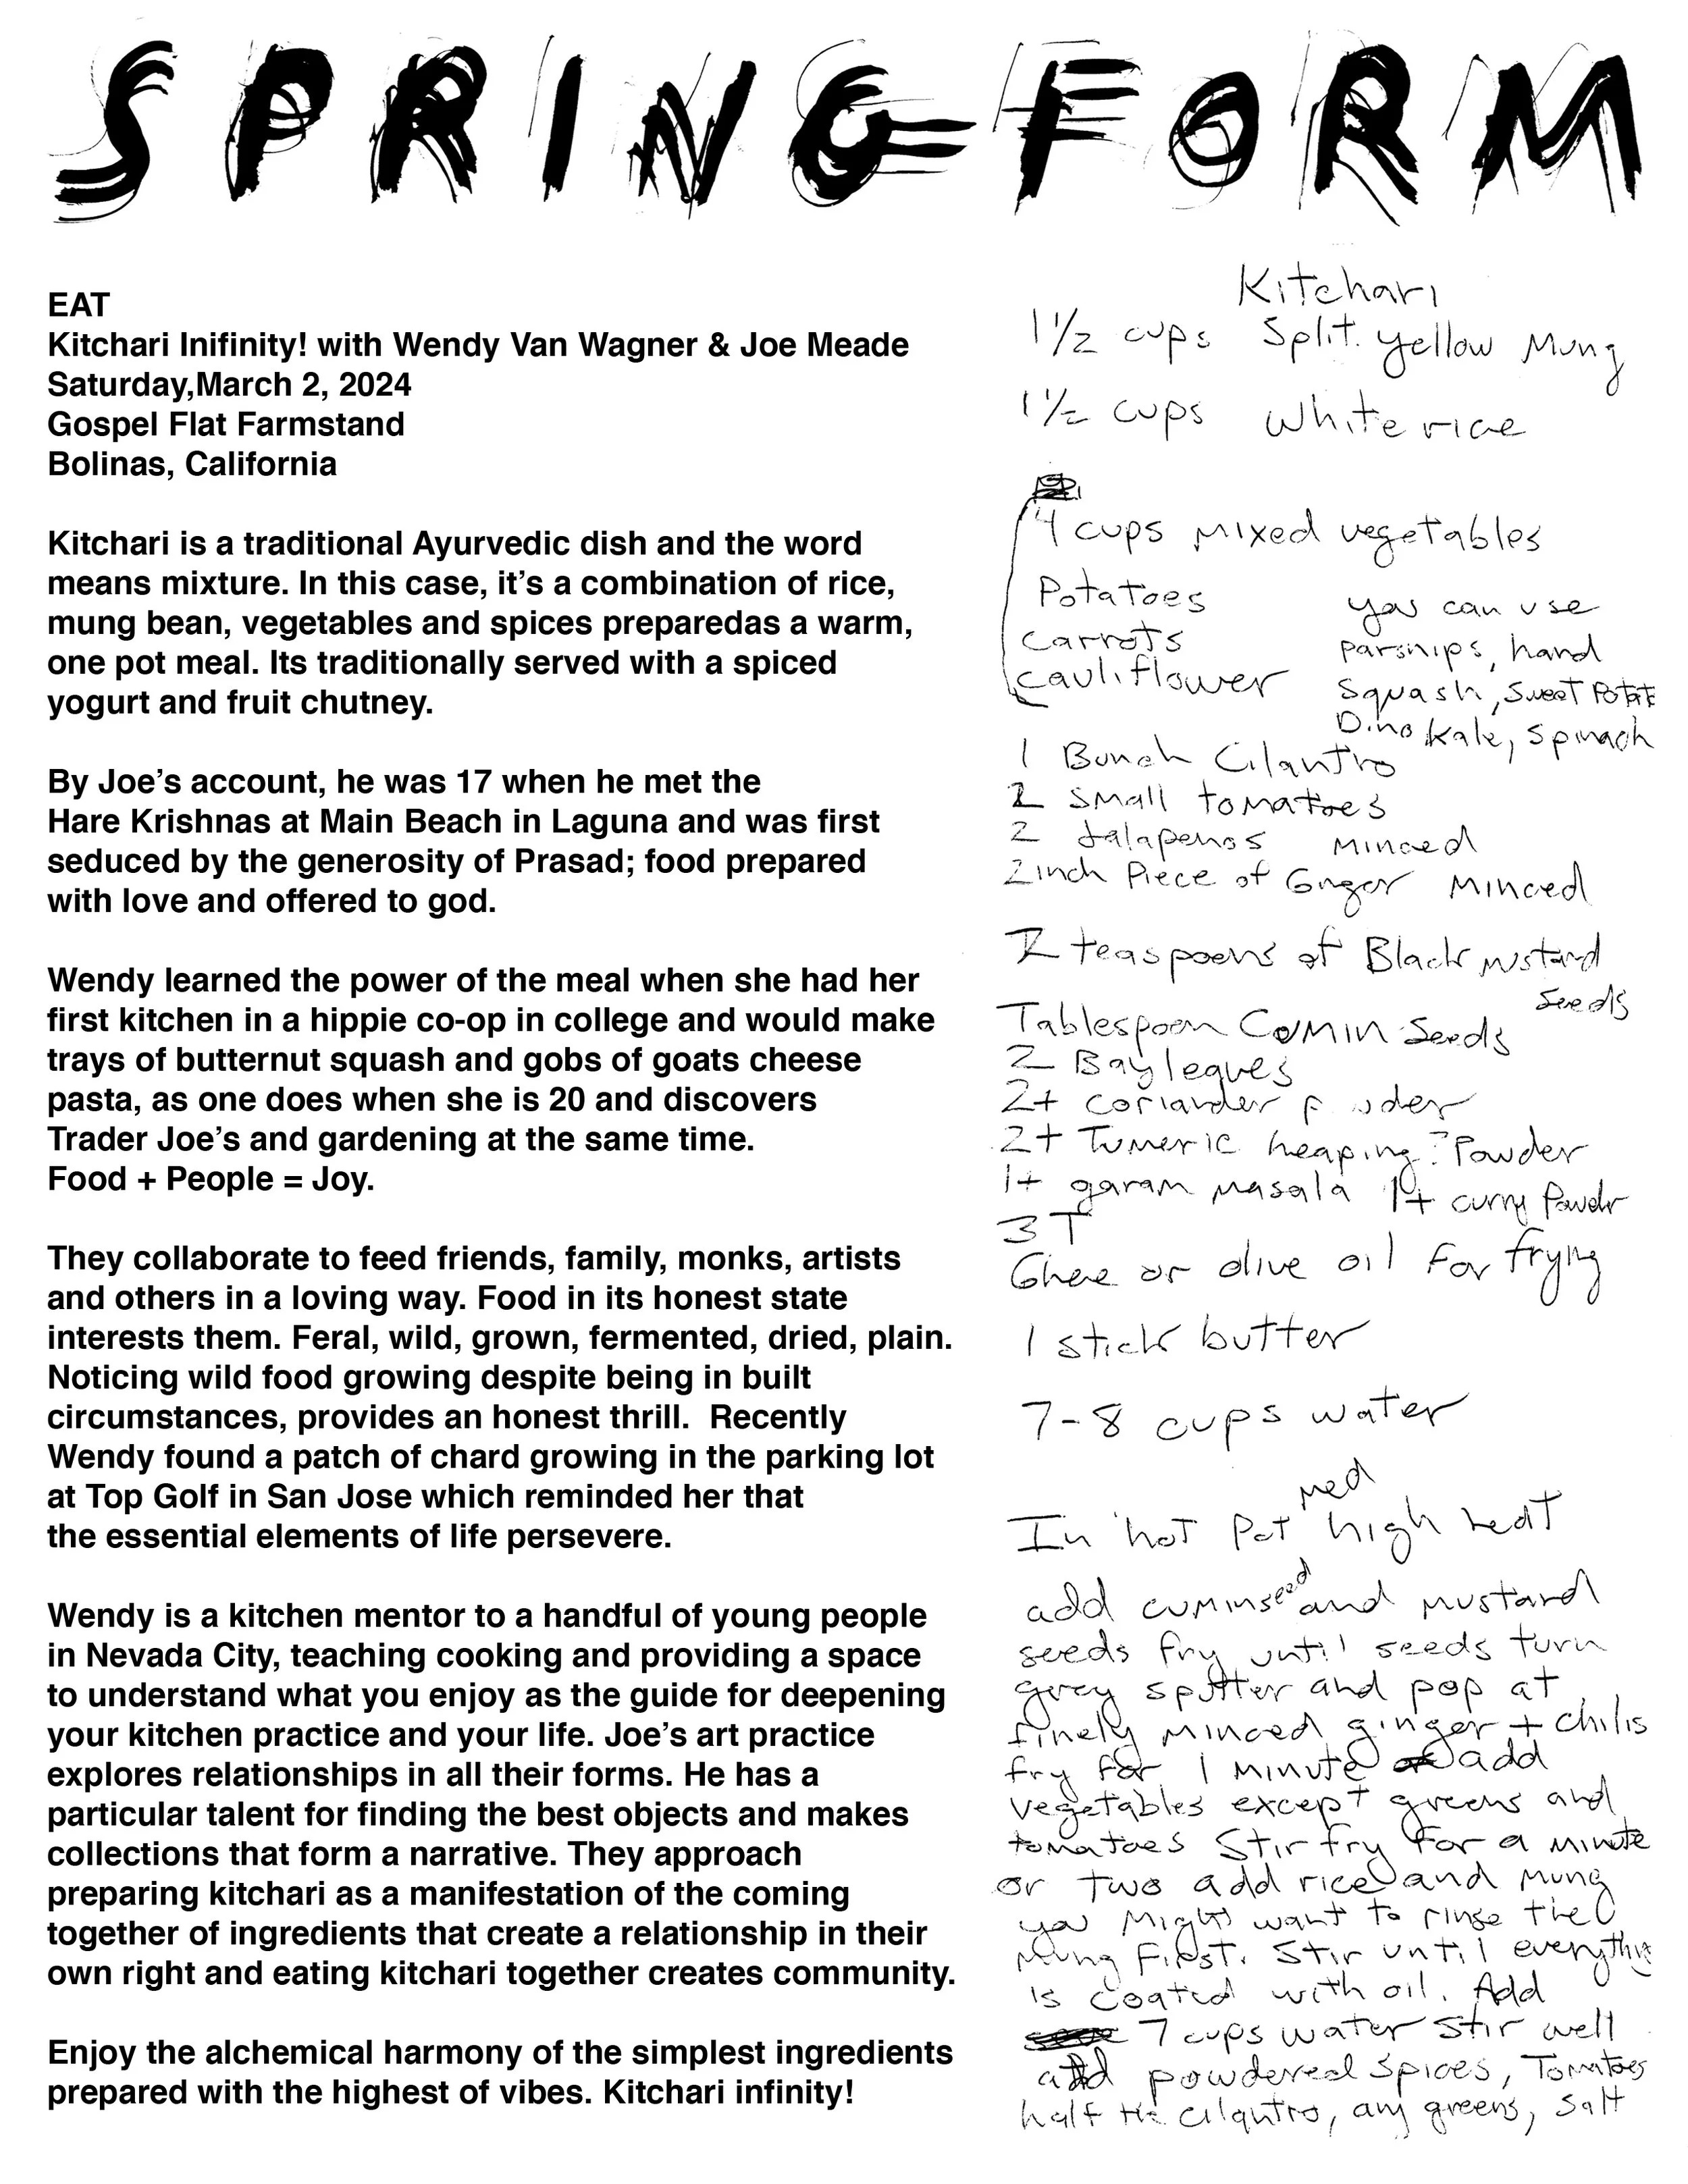 SPRING FORM
EAT
Kitchari Inifinity! with Wendy Van Wagner & Joe Meade
Saturday,March 2, 2024
Gospel Flat Farmstand
Bolinas, California
Kitchari is a traditional Ayurvedic dish and the word
means mixture. In this case, it’s a combination of rice,
mung bean, vegetables and spices preparedas a warm,
one pot meal. Its traditionally served with a spiced
yogurt and fruit chutney.
By Joe’s account, he was 17 when he met the
Hare Krishnas at Main Beach in Laguna and was first
seduced by the generosity of Prasad; food prepared
with love and offered to god.
Wendy learned the power of the meal when she had her
first kitchen in a hippie co-op in college and would make
trays of butternut squash and gobs of goats cheese
pasta, as one does when she is 20 and discovers
Trader Joe’s and gardening at the same time.
Food + People = Joy.
They collaborate to feed friends, family, monks, artists
and others in a loving way. Food in its honest state
interests them. Feral, wild, grown, fermented, dried, plain.
Noticing wild food growing despite being in built
circumstances, provides an honest thrill.  Recently
Wendy found a patch of chard growing in the parking lot
at Top Golf in San Jose which reminded her that
the essential elements of life persevere.
Wendy is a kitchen mentor to a handful of young people
in Nevada City, teaching cooking and providing a space
to understand what you enjoy as the guide for deepening
your kitchen practice and your life. Joe’s art practice
explores relationships in all their forms. He has a
particular talent for finding the best objects and makes
collections that form a narrative. They approach
preparing kitchari as a manifestation of the coming
together of ingredients that create a relationship in their
own right and eating kitchari together creates community.
Enjoy the alchemical harmony of the simplest ingredients
prepared with the highest of vibes. Kitchari infinity!
Kitchari
1 1/2 cups Split yellow Mung
1 1/2 cups white rice
4 cups mixed vegetables
Potatoes
Carrots
Cauliflower
you can use
parsnips, hard
Squash, Sweet Potat
Dino Kale, Spinach
1 Bunch Cilantro
2 small tomatoes
2 Jalapenos Minced
2 inch Piece of Ginger Minced
2 teaspoons of Black mustard
seeds
Tablespoon Cumin Seeds
2 Bay leaves
2t coriander powder
2t Tumeric heaping Powder
1t garam masala 1t curry Powder
3 T
Ghee or olive oil for frying
1 stick butter
7-8 cups water
In hot Pot med high heat
add cumin seed and mustard
seeds fry until seeds turn
grey sputter and pop at
finely minced ginger + chilis
fry for 1 minute add
vegetables except greens and
tomatoes Stir fry for a minute
or two add rice and mung
you might want to rinse the
Mung First. Stir until everything
is coated with oil. Add
7 cups water stir well
add powdered spices, Tomatoes
half the cilantro, any greens, salt